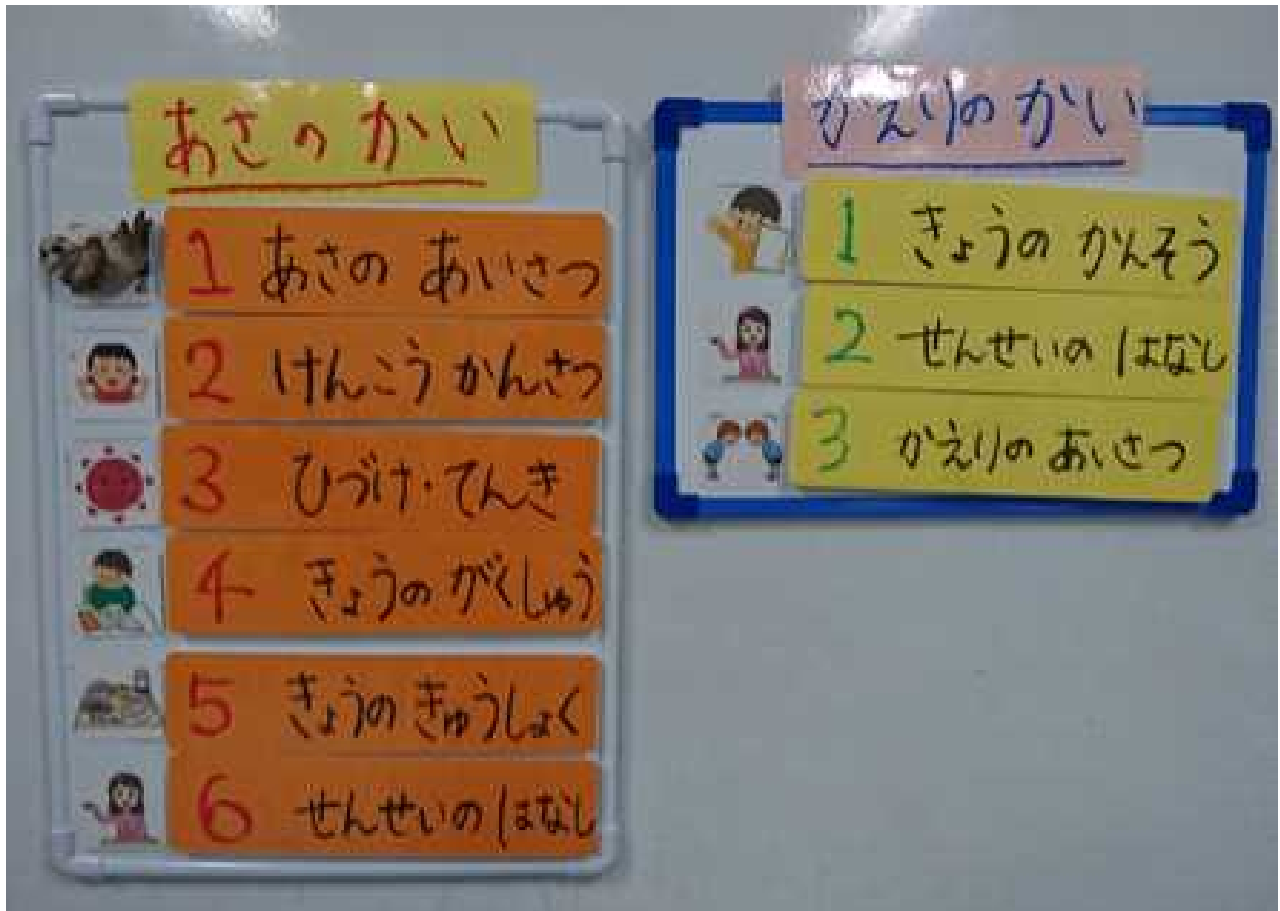 あさの かい
1 あさの あいさつ
2 けんこう かんさつ
3 ひづけ・てんき
4 きょうの がくしゅう
5 きょうの きゅうしょく
6 せんせいの はなし
かえりの かい
1 きょうの かんそう
2 せんせいの はなし
3 かえりの あいさつ